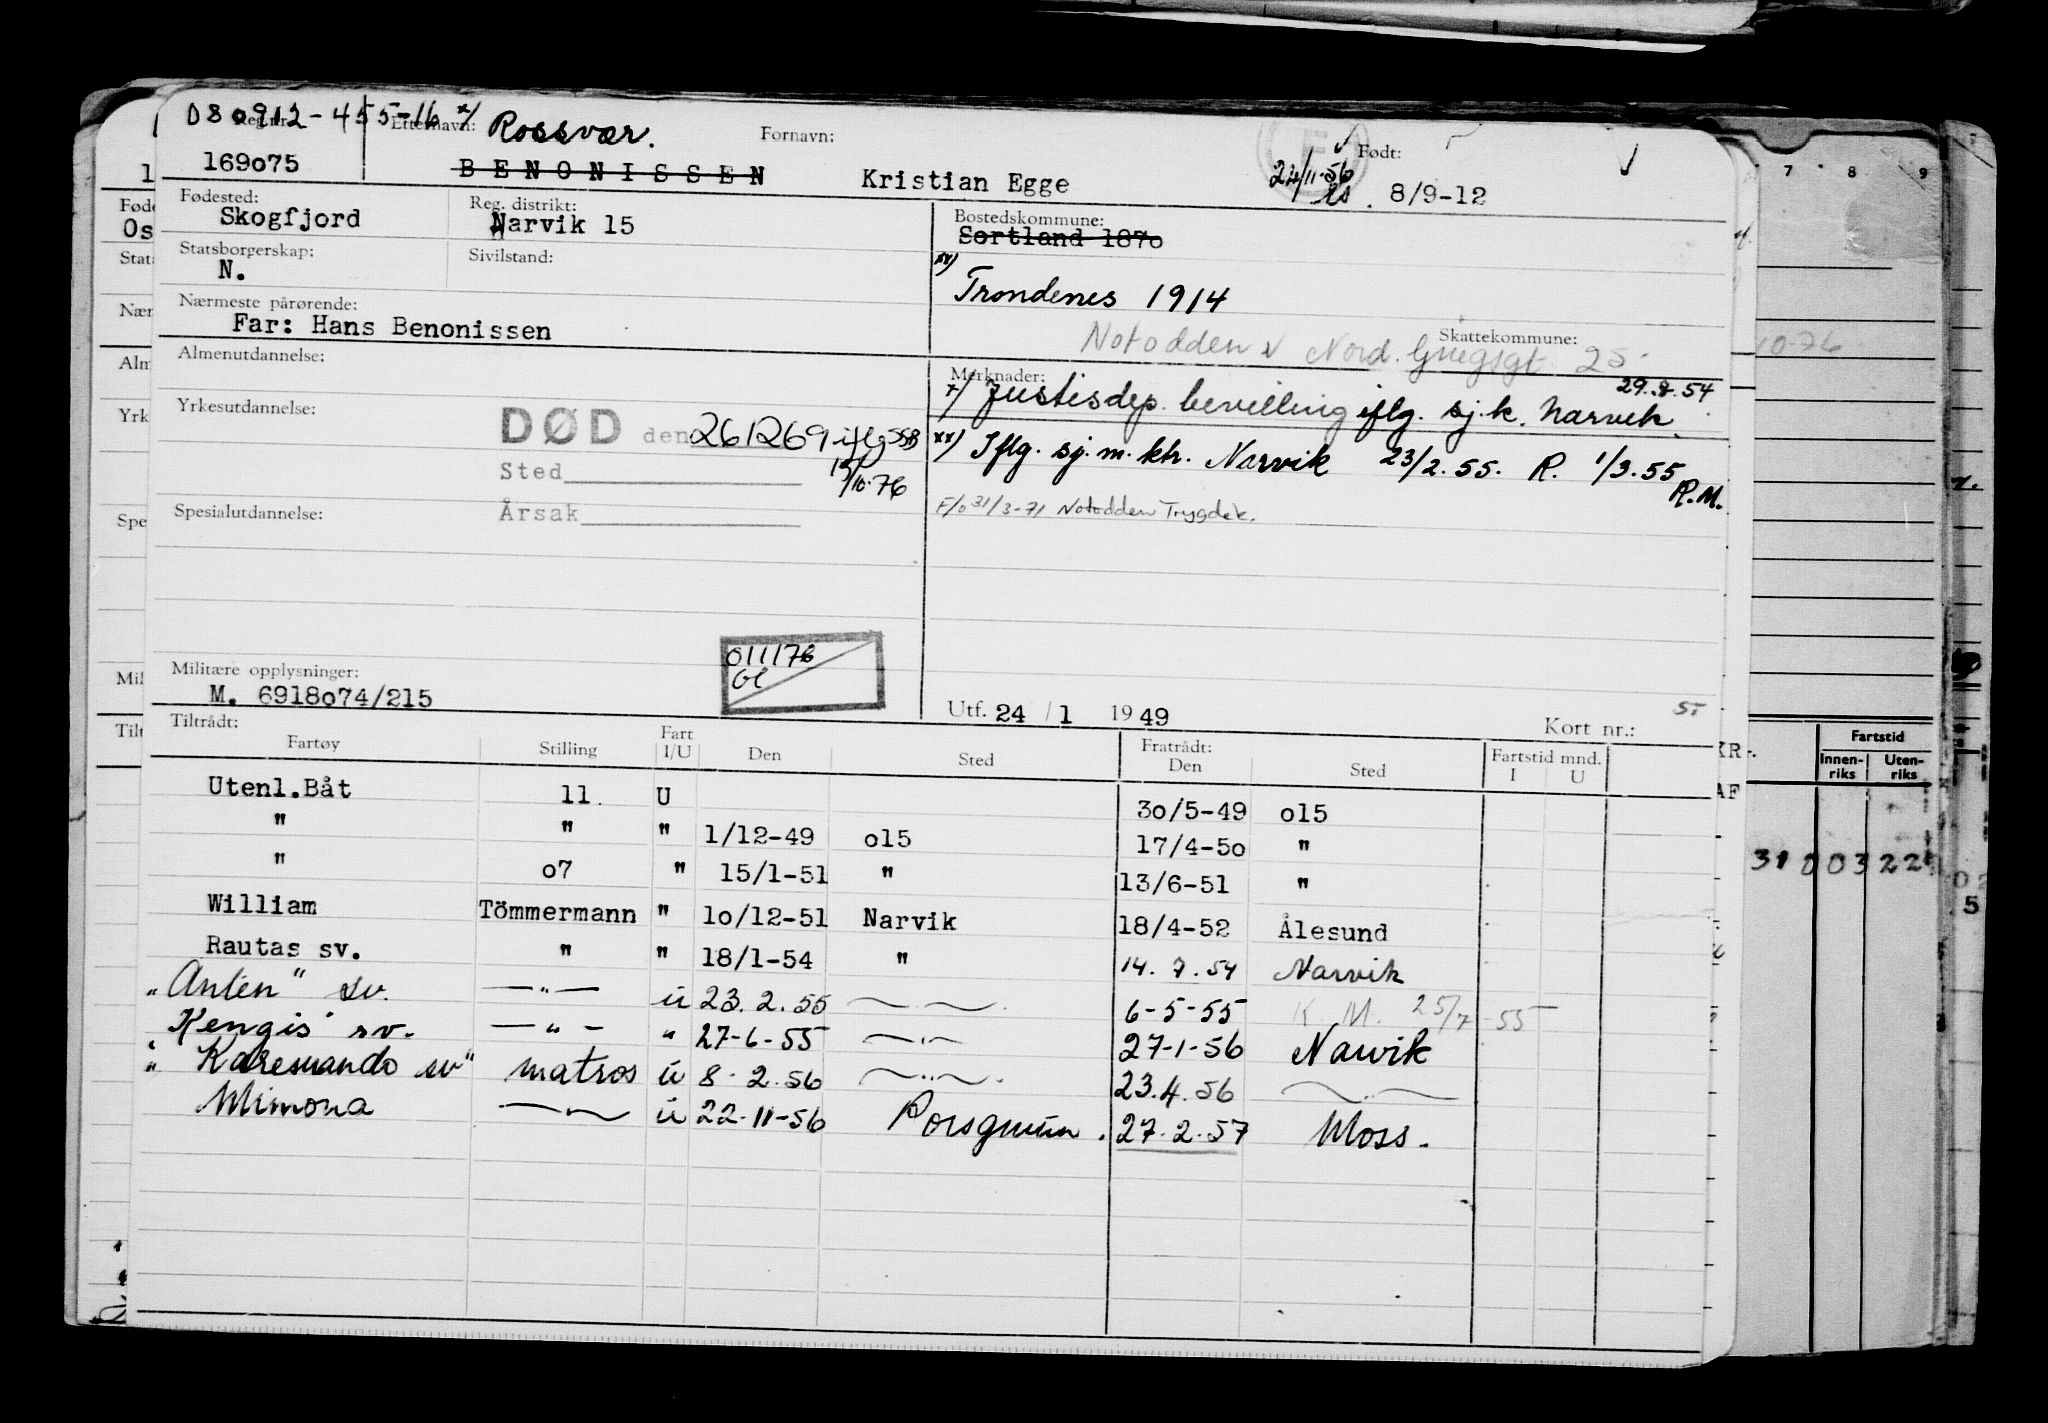 080912-455-16 x/ Rossvær.
Reg.nr. Etternavn: Fornavn: Født:
169o75 BENONISSEN Kristian Egge 22/11-56 8/9-12
Fødested: Reg. distrikt: Bostedskommune:
Skogfjord Narvik 15 Sortland 187o
Statsborgerskap: Sivilstand:
N.
xx) Trondenes 1914
Nærmeste pårørende:
Far: Hans Benonissen
Skattekommune:
Notodden v Nord. Griegsgt. 25
Almenutdannelse: Merknader:
x/ Justisdep. bevilling iflg. sj.k. Narvik. 29.8.54
Yrkesutdannelse:
DØD den 261269 iflg SSB
15/10-76
xx) Iflg. sj.m.ktr. Narvik 23/2.55. R. 1/3.55 R.M.
Sted
F/o 31/3-71 Notodden Trygdek.
Spesialutdannelse: Årsak
011176
Militære opplysninger:
M. 6918o74/215
Utf. 24 / 1 19 49 Kort nr.: 5-
Tiltrådt: Fratrådt:
Fartøy Stilling Fart I/U Den Sted Den Sted Fartstid mnd. I U
Utenl.Båt 11 U 3o/5-49 o15
" " " 1/12-49 o15 17/4-5o "
" o7 " 15/1-51 " 13/6-51 "
William Tömmermann " 1o/12-51 Narvik 18/4-52 Ålesund
Rautas sv. " " 18/1-54 " 14.7.54 Narvik
"Anten" sv. —"— u 23.2.55 —"— 6-5-55 K.M. 25/7-55
Kengis sv. —"— " 27-6-55 —"— 27-1-56 Narvik
"Karesuando sv" matros u 8-2.56 —"— 23.4.56 —"—
Mimona —"— u 22-11-56 Porsgrunn. 27.2.57 Moss.
7 8 9
10-76
Fartstid
Innen-riks Uten-riks